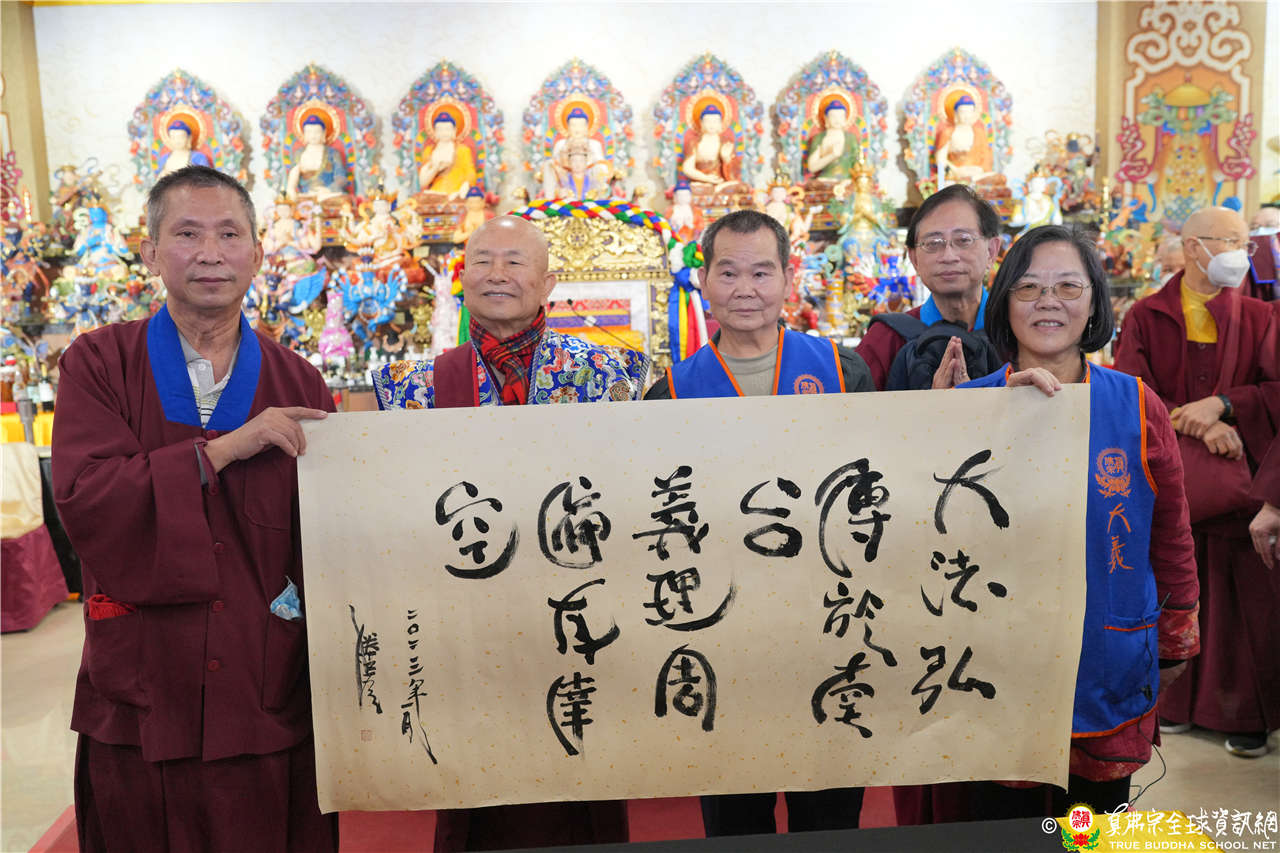 大法弘
傳於南
台
義理周
徧達
空
二〇二三年一月
大義
© 真佛宗全球資訊網
TRUE BUDDHA SCHOOL NET